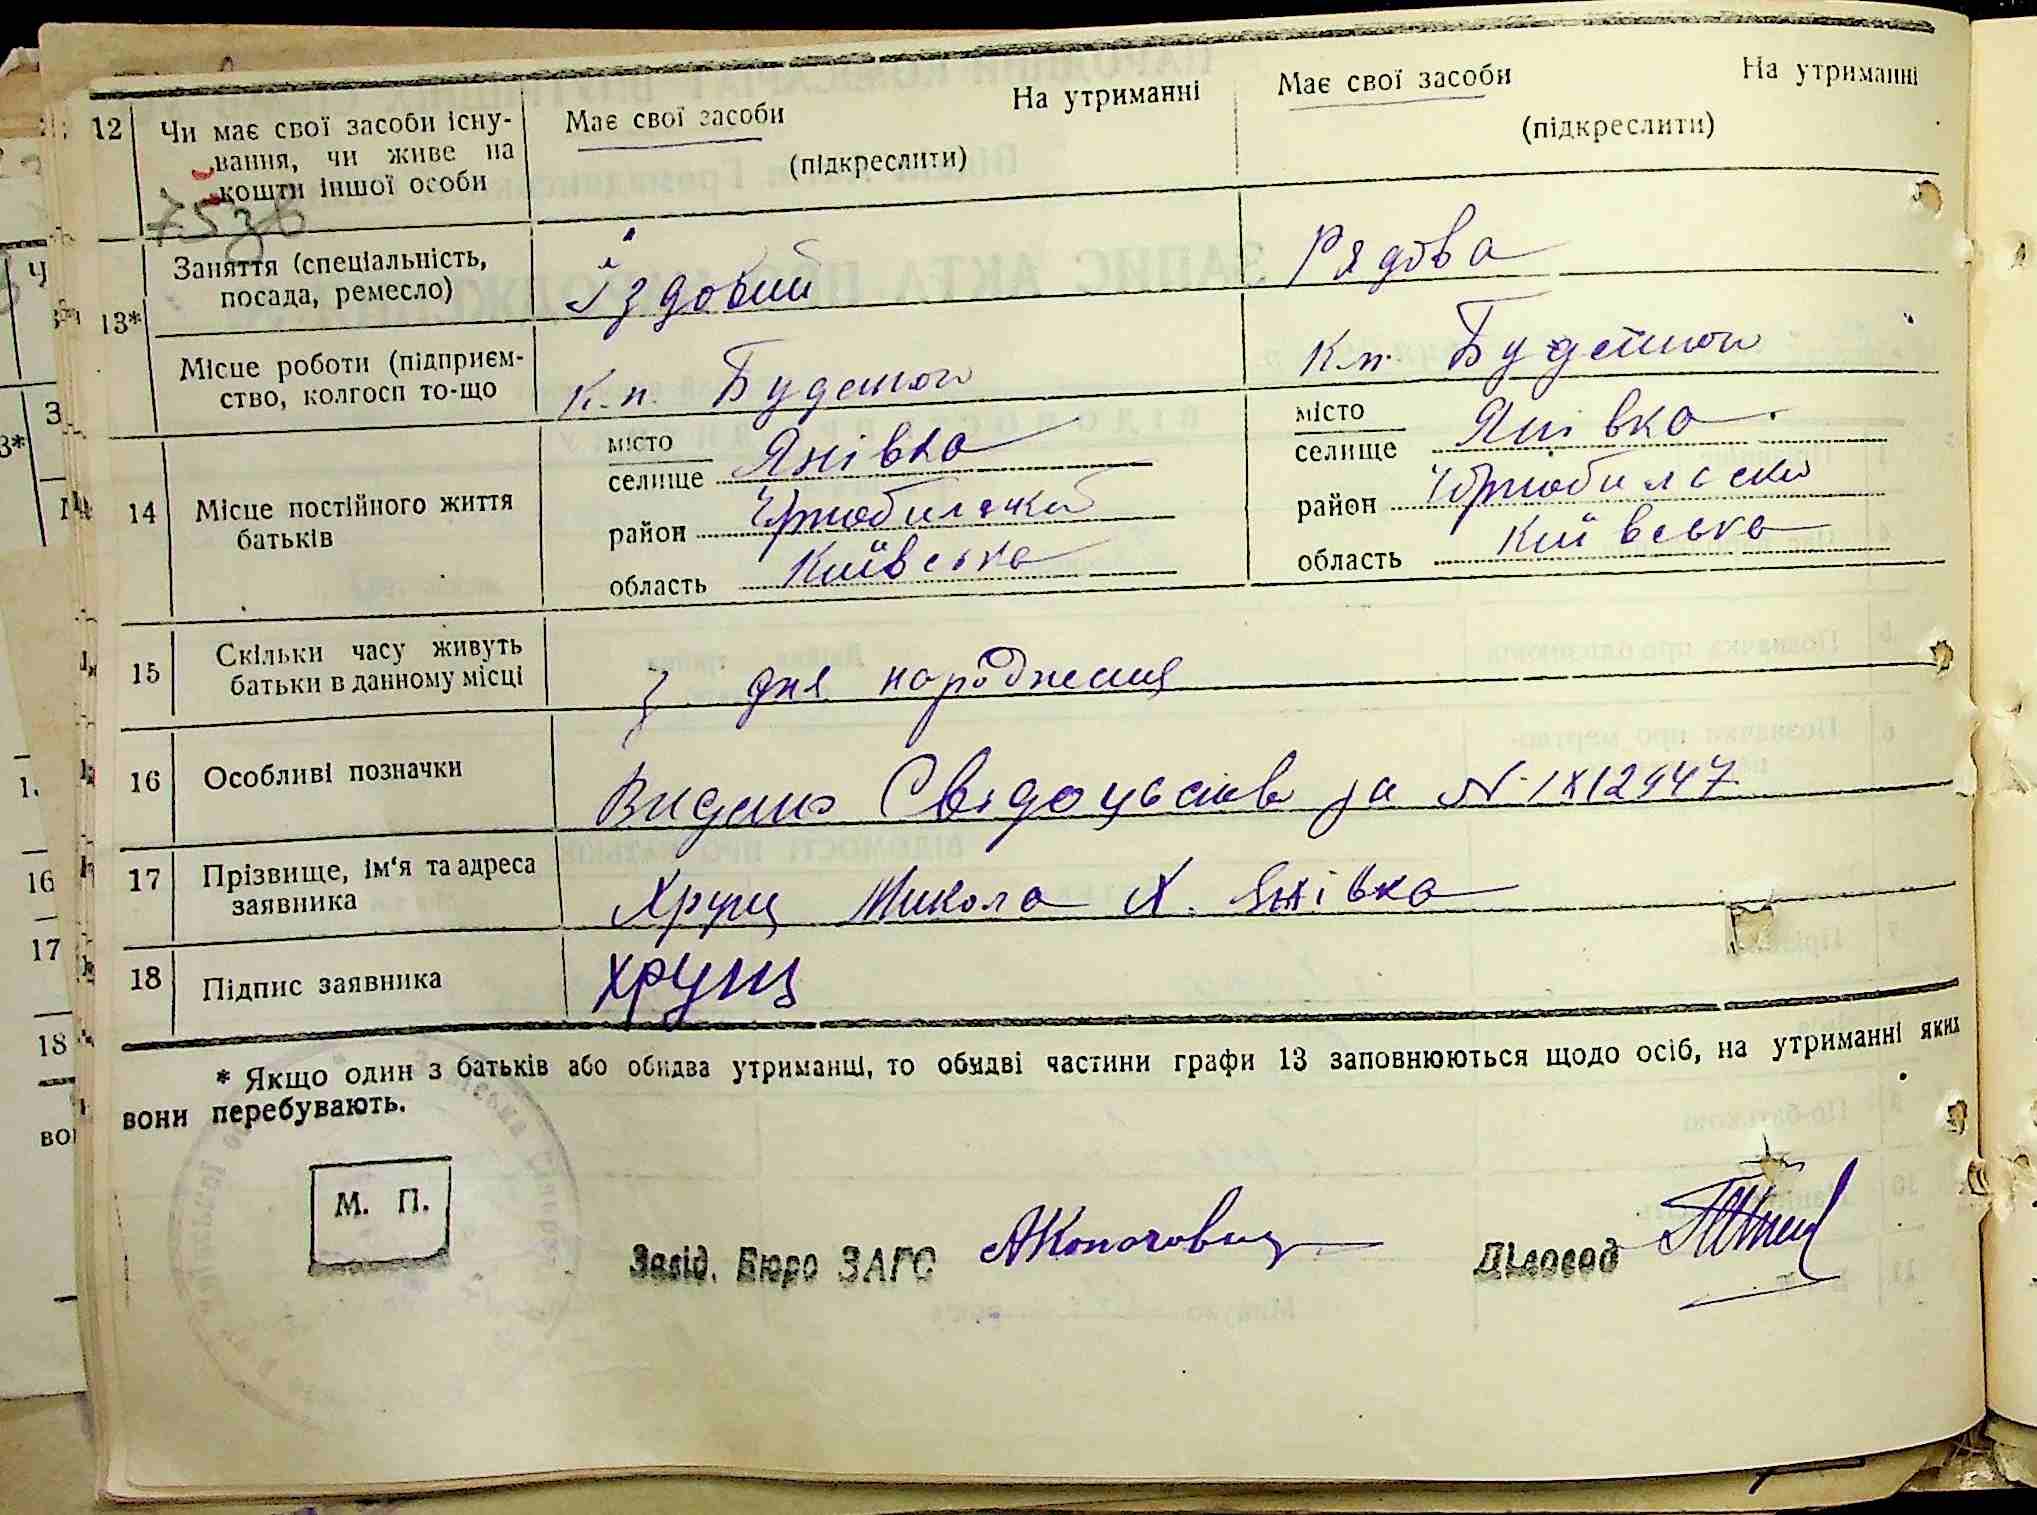 12 Чи має свої засоби існу-
вання, чи живе на
кошти іншої особи
Має свої засоби На утриманні
(підкреслити)
Має свої засоби На утриманні
(підкреслити)
13* Заняття (спеціальність,
посада, ремесло)
Їздовий
Рядова
Місце роботи (підприєм-
ство, колгосп то-що
К.п. Буденого
К.п. Буденого
14 Місце постійного життя
батьків
місто
селище Янівка
район Чорнобильский
область Київська
місто
селище Янівка
район Чорнобильски
область Київська
15 Скільки часу живуть
батьки в данному місці
З дня народження
16 Особливі позначки
Видано Свідоцтво за № 1Х12947
17 Прізвище, ім'я та адреса
заявника
Хрущ Микола Х. Янівка
18 Підпис заявника
Хрущ
* Якщо один з батьків або обидва утриманці, то обидві частини графи 13 заповнюються щодо осіб, на утриманні яких
вони перебувають.
М. П.
Завід. Бюро ЗАГС
Діловод